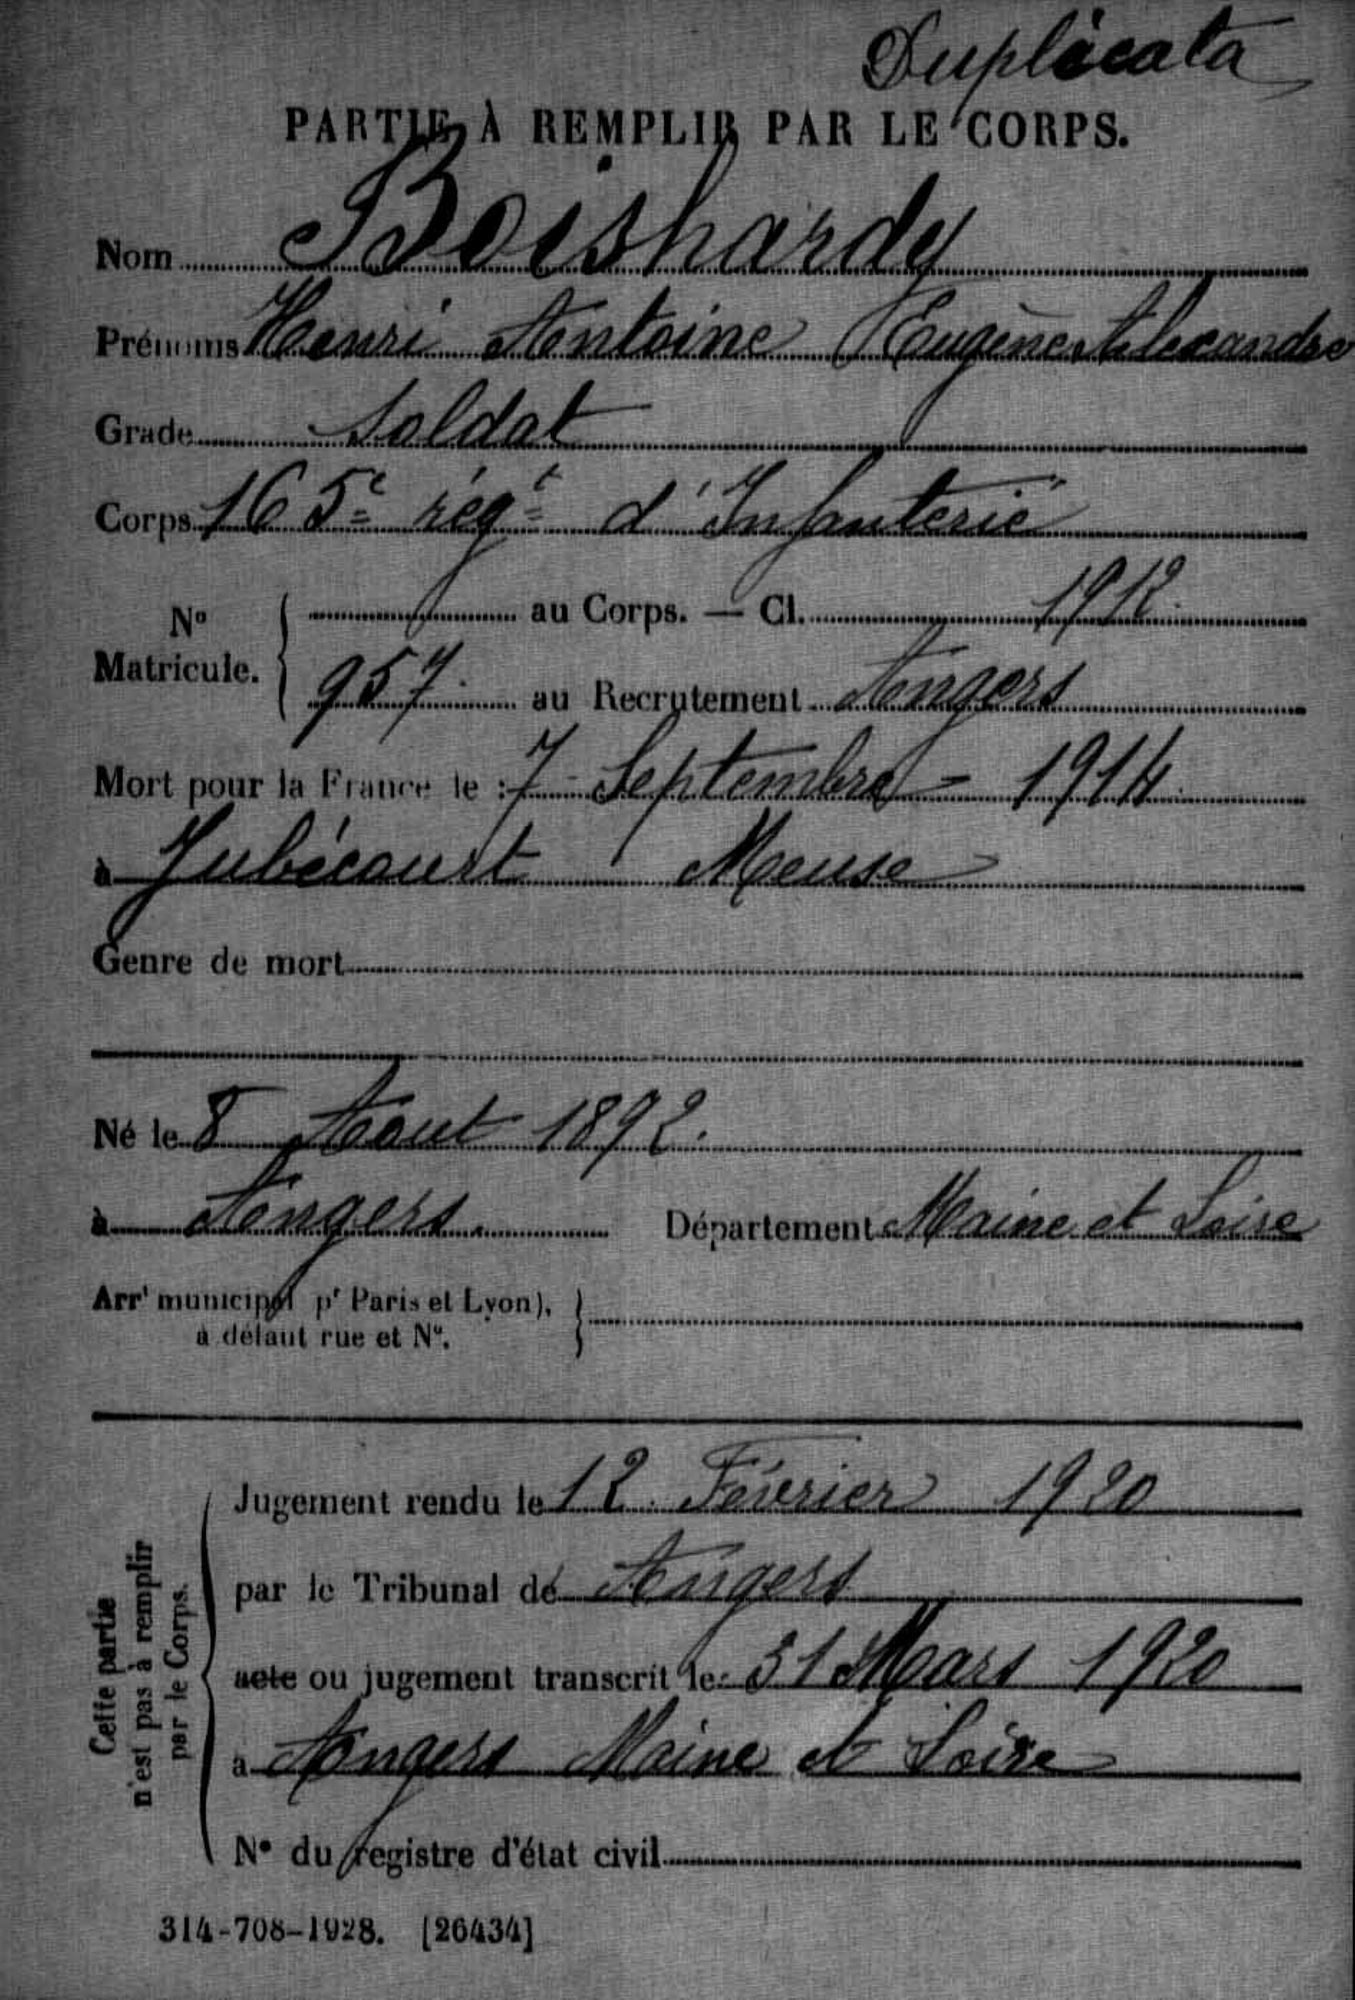 Duplicata
PARTIE À REMPLIR PAR LE CORPS.
Nom Boishardy
Prénoms Henri Antoine Eugène Alexandre
Grade Soldat
Corps 165e régt d'Infanterie
No Matricule. { au Corps. — Cl. 1912.
957. au Recrutement Angers
Mort pour la France le : 7 Septembre - 1914
à Jubécourt Meuse
Genre de mort
Né le 8 Aout 1892.
à Angers. Département Maine et Loire
Arrt municipal pr Paris et Lyon),
à défaut rue et No.
Cette partie
n'est pas à remplir
par le Corps.
Jugement rendu le 12 Février 1920
par le Tribunal de Angers
acte ou jugement transcrit le 31 Mars 1920
à Angers Maine et Loire
No du registre d'état civil
314-708-1928. [26434]